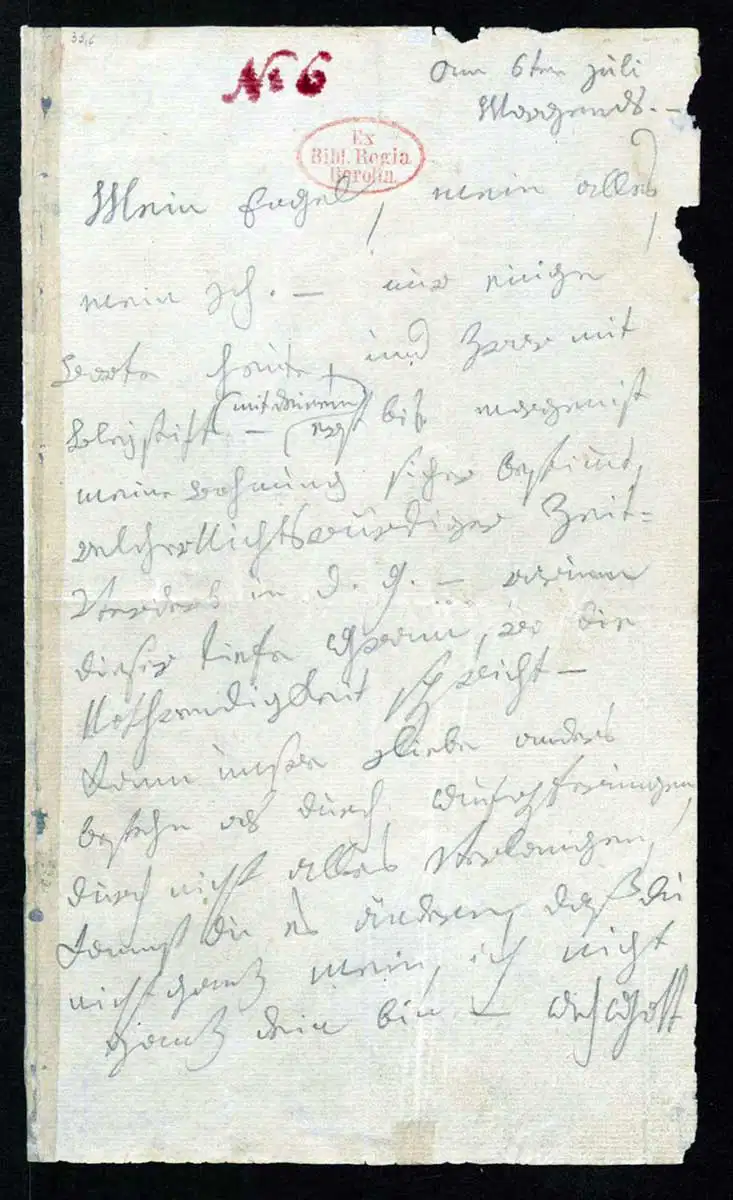 35,6
No 6
am 6ten juli
Morgends. –
Ex
Bibl. Regia
Berolin.
Mein Engel, mein alles,
mein Ich. – nur einige
worte heute, und zwar mit
Bleystift –
(mit deinem)
erst bis morgen ist
meine wohnung sicher bestimmt,
welcher Nichtswürdiger Zeit=
verderb in d. g. – warum
dieser tiefe Gram, wo die
Nothwendigkeit spricht –
Kann unsre Liebe anders
bestehn als durch Aufopferungen,
durch nicht alles verlangen,
kannst du es ändern, daß du
nicht ganz mein, ich nicht
ganz dein bin – Ach Gott